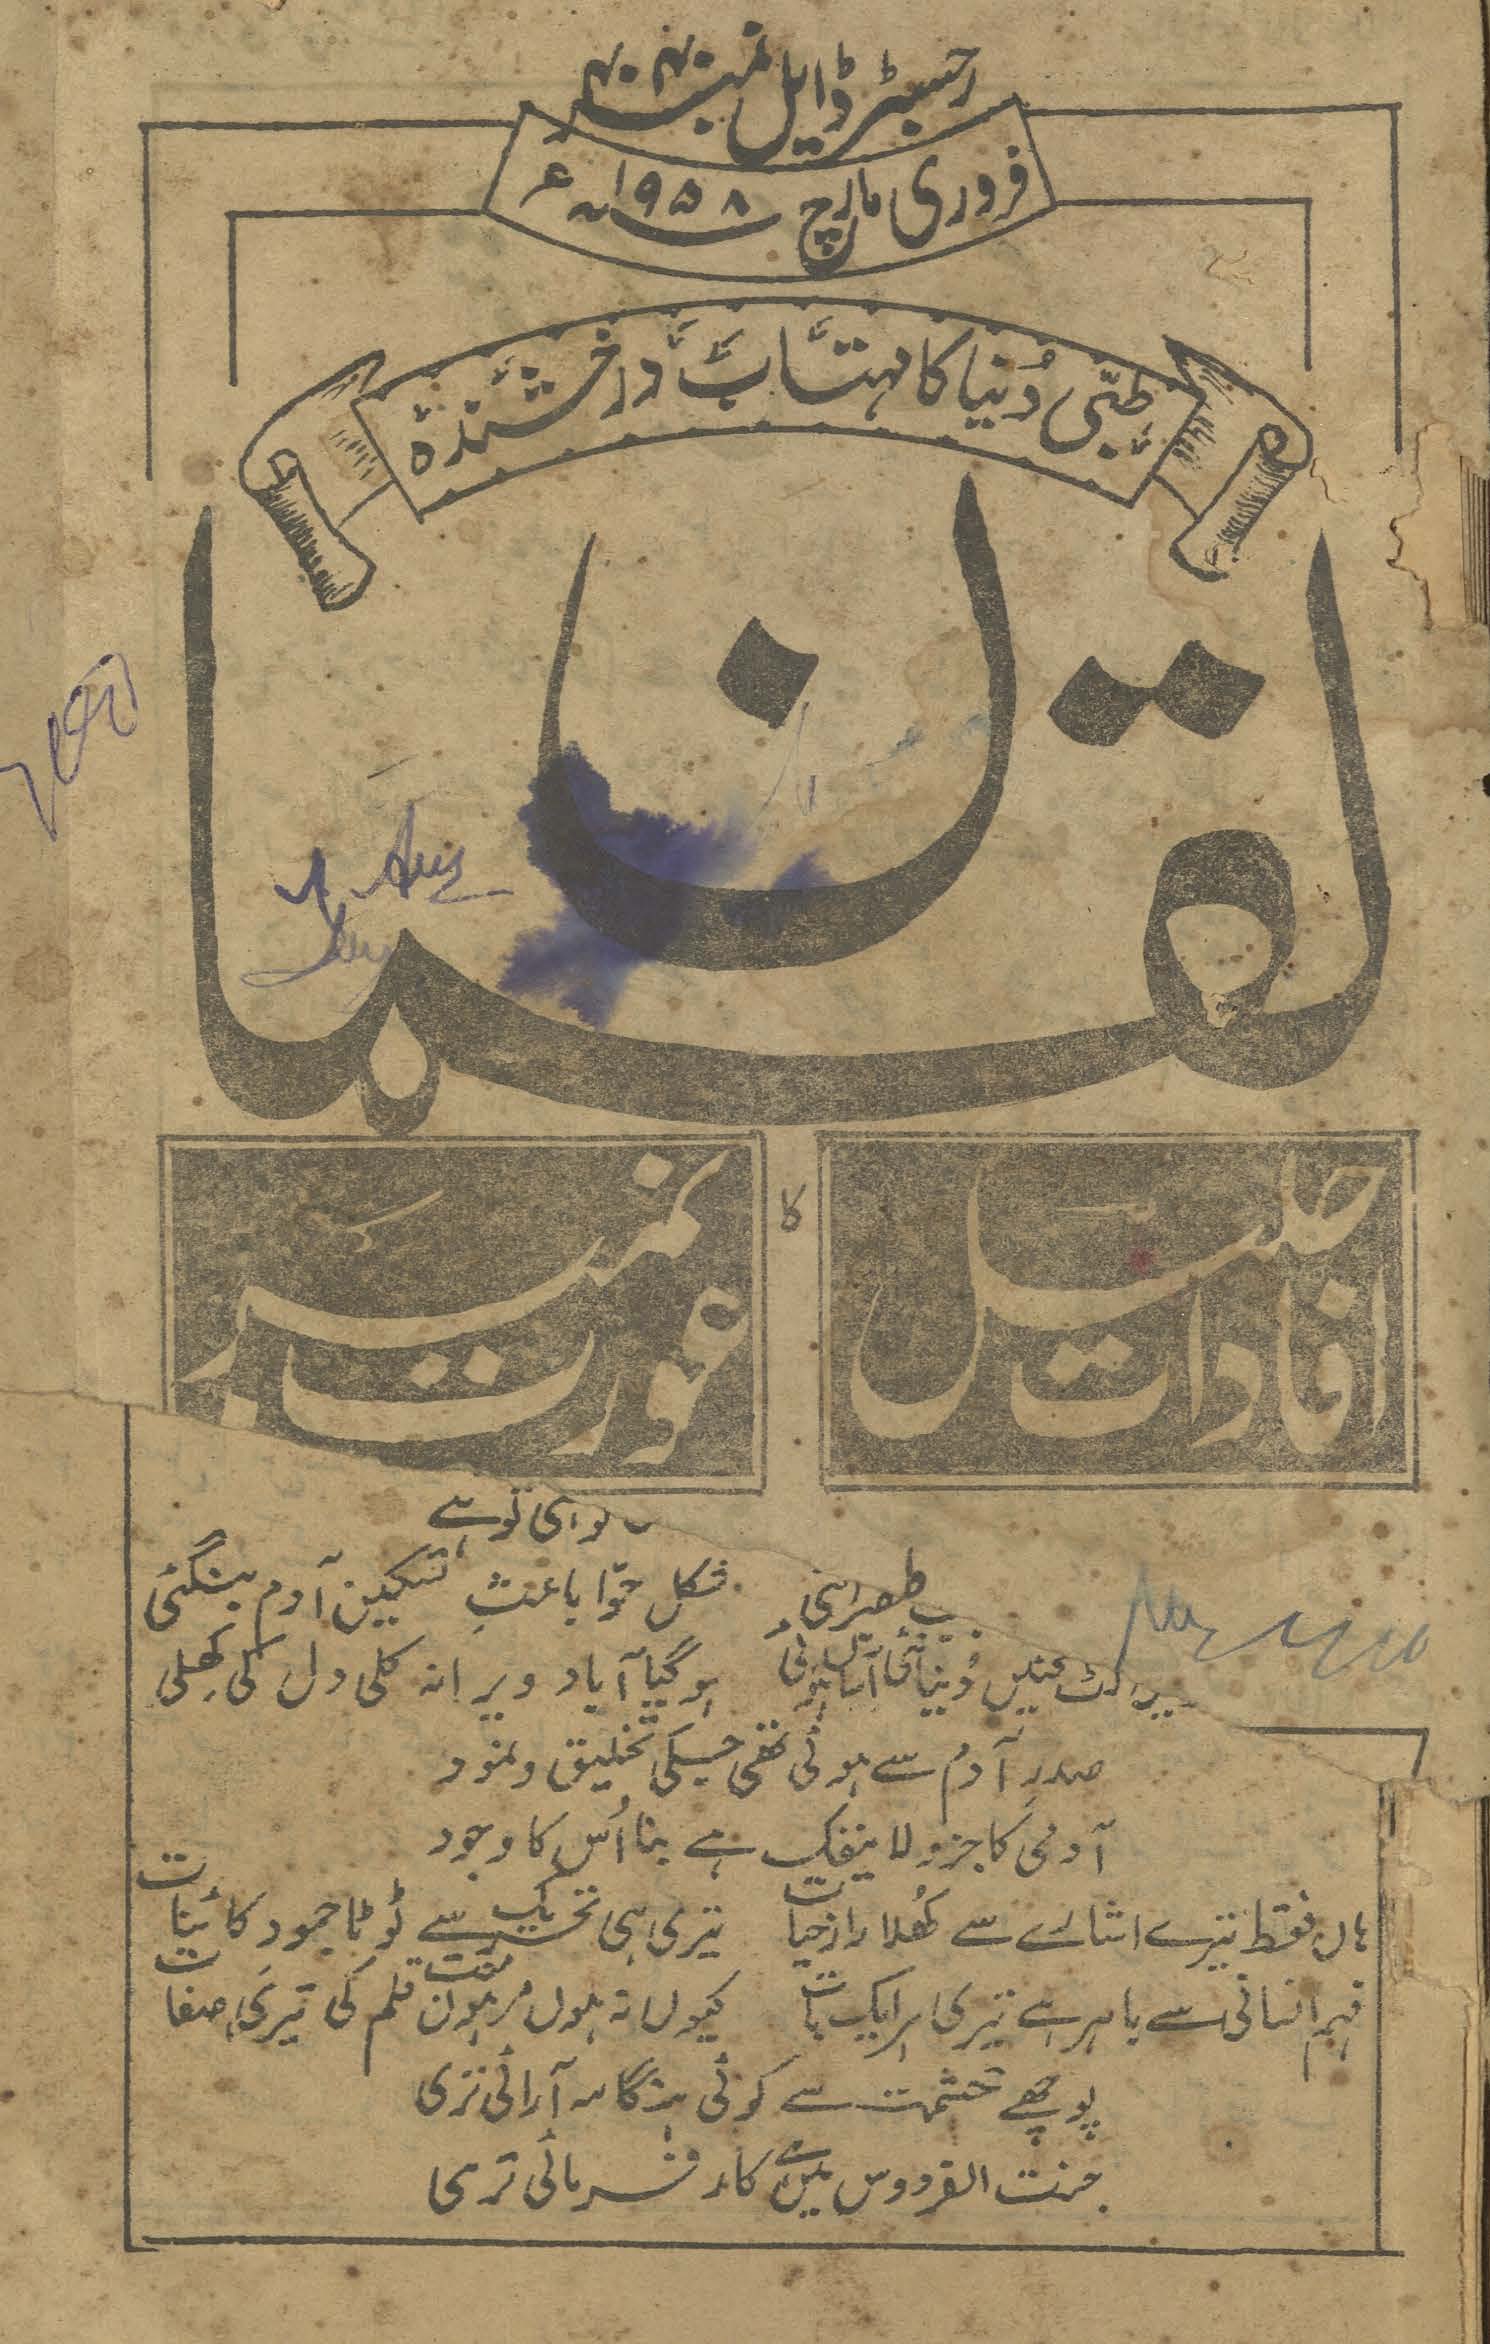 رجسٹرڈ ایل نمبر ۴۰۴۰
فروری مارچ ۱۹۵۸ء
طبّی دُنیا کا مہتاب درخشندہ
لقمان
افادات جلیل
کا
عورت نمبر
تو ہے
شکل حوّا باعثِ تسکین آدم بنگئی
ہو گیا آباد ویرانہ کلی دل کی کھِلی
صدرِ آدم سے ہوئی تھی جسکی تخلیق و نمود
آدمی کا جزو لاینفک ہے بنا اُس کا وجود
ہاں فقط تیرے اشارے سے کھُلا راز حیات تیری ہی تحریک سے ٹوٹا جمود کائنات
فہم انسانی سے باہر ہے تیری ہر ایک بات کیوں نہ ہوں مرہون منت قلم کی تیری صفات
پوچھے حشمت سے کوئی ہنگامہ آرائی تری
جنت الفردوس میں ہے کارفرمائی تری